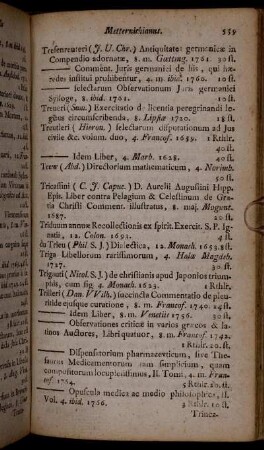 Metternichianus. 559
Tresenreuteri (J. U. Chr.) Antiquitates germanicæ in
Compendio adornatæ, 8. m. Gætting. 1761. 30 st.
—— Comment. Juris germanici de his, qui hæ-
redes institui prohibentur, 4. m. ibid. 1760. 10 st.
—— selectarum Observationum Juris germanici
Sylloge, 8. ibid. 1761. 10 st.
Treneri (Sam.) Exercitatio de licentia peregrinandi le-
gibus circumscribenda, 8. Lipsiæ 1720. 18 st.
Treutleri (Hieron.) selectarum disputationum ad Jus
civile &c. volum. duo, 4. Francof. 1689. 1 Rthlr.
40 st.
—— Idem Liber, 4. Marb. 1628. 40 st.
Trew (Abd.) Directorium mathematicum, 4. Norimb.
50 st.
Tricassini (C. J. Capuc.) D. Aurelii Augustini Hipp.
Epis. Liber contra Pelagium & Celestinum de Gra-
tia Christi Comment. illustratus, 8. maj. Mogunt.
1687. 20 st.
Triduum annuæ Recollectionis ex spirit. Exercit. S. P. Ig-
natii, 12. Colon. 1693. 4 st.
du Trieu (Phil. S. J.) Dialectica, 12. Monach. 1653. 8 st.
Triga Libellorum rarissimorum, 4. Halæ Magdeb.
1727. 30 st.
Trigauti (Nicol. S. J.) de christianis apud Japonios trium-
phis, cum fig. 4. Monach. 1623. 1 Rthlr.
Trilleri (Dan. Wilh.) succincta Commentatio de pleu-
ritide ejusque curatione, 8. m. Francof. 1740. 24 st.
—— Idem Liber, 8. m. Venetiis 1756. 30 st.
—— Observationes criticæ in varios græcos & la-
tinos Auctores, Libri quatuor, 8. m. Francof. 1742.
1 Rthlr. 20 st.
—— Dispensatorium pharmaceuticum, sive The-
saurus Medicamentorum tam simplicium, quam
compositorum locupletissimus, II. Tomi, 4. m. Fran-
cof. 1764. 5 Rthlr. 20 st.
—— Opuscula medica ac medio philosophica, II.
Vol. 4. ibid. 1766. 3 Rthlr. 10 st.
Trinca-